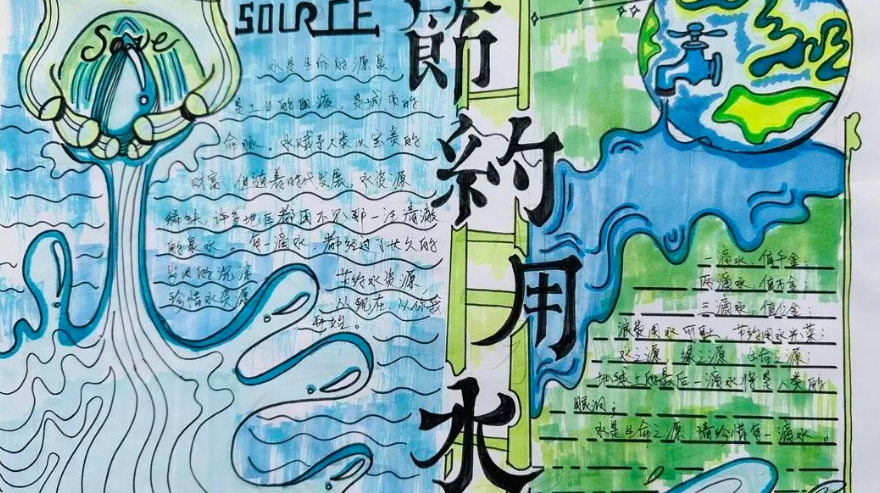 SOURCE
Save
節約用水
水是生命的源泉，
是工业的血液，是城市的
命脉。水赋予人类以宝贵的
财富，但随着时代发展，水资源
稀缺，许多地区都因不见那一汪清澈
的泉水。每滴水，都经过了长久的
岁月的沉淀
珍惜水资源
节约水资源，
从现在，从你我
开始。
一滴水，值千金；
两滴水，值万金；
三滴水，值亿金；
浪费用水可耻，节约用水光荣；
水之源，绿之源，生命之源；
地球上的最后一滴水将是人类的
眼泪；
水是生命之源 请珍惜每一滴水。